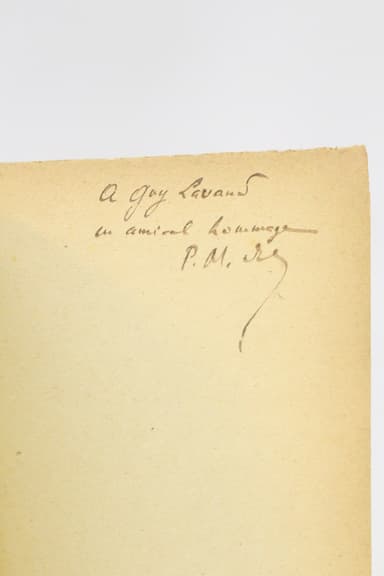 A Guy Lavaud
en amical hommage
P. M.